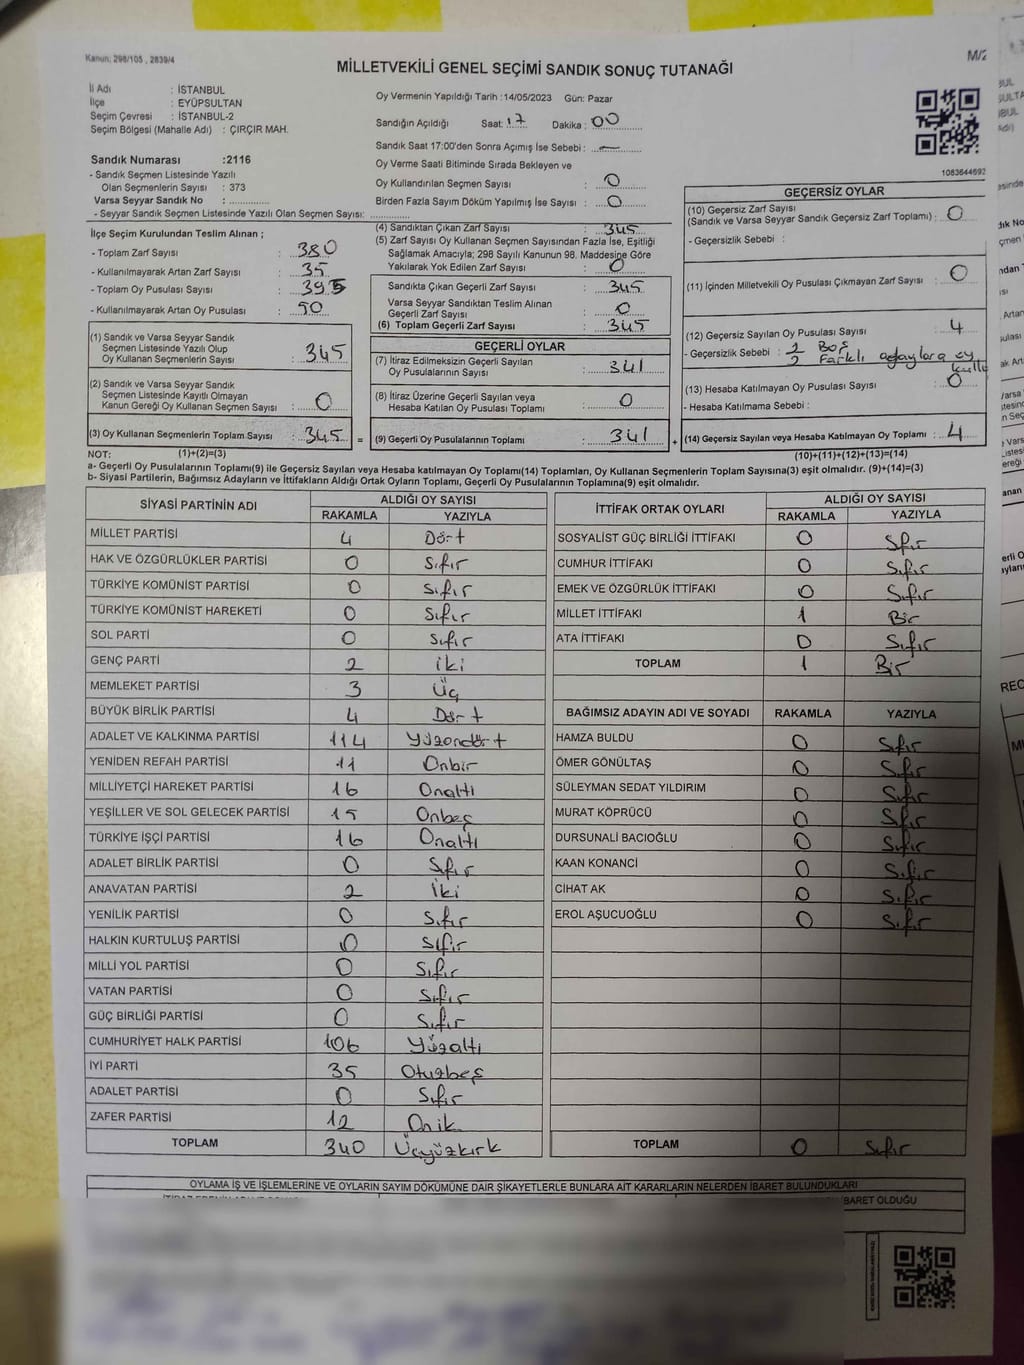 Kanun: 298/105 , 2839/4
M/2
MİLLETVEKİLİ GENEL SEÇİMİ SANDIK SONUÇ TUTANAĞI
İl Adı : İSTANBUL
İlçe : EYÜPSULTAN
Seçim Çevresi : İSTANBUL-2
Seçim Bölgesi (Mahalle Adı) : ÇIRÇIR MAH.
Sandık Numarası :2116
- Sandık Seçmen Listesinde Yazılı
Olan Seçmenlerin Sayısı : 373
Varsa Seyyar Sandık No : ..............
- Seyyar Sandık Seçmen Listesinde Yazılı Olan Seçmen Sayısı: ..............
Oy Vermenin Yapıldığı Tarih :14/05/2023 Gün: Pazar
Sandığın Açıldığı Saat: 17 Dakika : 00
Sandık Saat 17:00'den Sonra Açımış İse Sebebi : —
Oy Verme Saati Bitiminde Sırada Bekleyen ve
Oy Kullandırılan Seçmen Sayısı : 0
Birden Fazla Sayım Döküm Yapılmış İse Sayısı : 0
1083644692
İlçe Seçim Kurulundan Teslim Alınan ;
- Toplam Zarf Sayısı : 380
- Kullanılmayarak Artan Zarf Sayısı : 35
- Toplam Oy Pusulası Sayısı : 395
- Kullanılmayarak Artan Oy Pusulası : 50
(1) Sandık ve Varsa Seyyar Sandık
Seçmen Listesinde Yazılı Olup
Oy Kullanan Seçmenlerin Sayısı : 345
(2) Sandık ve Varsa Seyyar Sandık
Seçmen Listesinde Kayıtlı Olmayan
Kanun Gereği Oy Kullanan Seçmen Sayısı : 0
(3) Oy Kullanan Seçmenlerin Toplam Sayısı : 345 =
(4) Sandıktan Çıkan Zarf Sayısı : 345
(5) Zarf Sayısı Oy Kullanan Seçmen Sayısından Fazla İse, Eşitliği
Sağlamak Amacıyla; 298 Sayılı Kanunun 98. Maddesine Göre
Yakılarak Yok Edilen Zarf Sayısı : 0
Sandıkta Çıkan Geçerli Zarf Sayısı : 345
Varsa Seyyar Sandıktan Teslim Alınan
Geçerli Zarf Sayısı : 0
(6) Toplam Geçerli Zarf Sayısı : 345
GEÇERLİ OYLAR
(7) İtiraz Edilmeksizin Geçerli Sayılan
Oy Pusulalarının Sayısı : 341
(8) İtiraz Üzerine Geçerli Sayılan veya
Hesaba Katılan Oy Pusulası Toplamı : 0
(9) Geçerli Oy Pusulalarının Toplamı : 341 +
GEÇERSİZ OYLAR
(10) Geçersiz Zarf Sayısı
(Sandık ve Varsa Seyyar Sandık Geçersiz Zarf Toplamı) : 0
- Geçersizlik Sebebi :
(11) İçinden Milletvekili Oy Pusulası Çıkmayan Zarf Sayısı : 0
(12) Geçersiz Sayılan Oy Pusulası Sayısı : 4
- Geçersizlik Sebebi : 2 Boş
2 Farklı adaylara oy
(13) Hesaba Katılmayan Oy Pusulası Sayısı : 0
- Hesaba Katılmama Sebebi :
(14) Geçersiz Sayılan veya Hesaba Katılmayan Oy Toplamı : 4
NOT: (1)+(2)=(3) (10)+(11)+(12)+(13)=(14)
a- Geçerli Oy Pusulalarının Toplamı(9) ile Geçersiz Sayılan veya Hesaba katılmayan Oy Toplamı(14) Toplamları, Oy Kullanan Seçmenlerin Toplam Sayısına(3) eşit olmalıdır. (9)+(14)=(3)
b- Siyasi Partilerin, Bağımsız Adayların ve İttifakların Aldığı Ortak Oyların Toplamı, Geçerli Oy Pusulalarının Toplamına(9) eşit olmalıdır.
SİYASİ PARTİNİN ADI ALDIĞI OY SAYISI
RAKAMLA YAZIYLA
MİLLET PARTİSİ 4 Dört
HAK VE ÖZGÜRLÜKLER PARTİSİ 0 Sıfır
TÜRKİYE KOMÜNİST PARTİSİ 0 Sıfır
TÜRKİYE KOMÜNİST HAREKETİ 0 Sıfır
SOL PARTİ 0 Sıfır
GENÇ PARTİ 2 İki
MEMLEKET PARTİSİ 3 Üç
BÜYÜK BİRLİK PARTİSİ 4 Dört
ADALET VE KALKINMA PARTİSİ 114 Yüzondört
YENİDEN REFAH PARTİSİ 11 Onbir
MİLLİYETÇİ HAREKET PARTİSİ 16 Onaltı
YEŞİLLER VE SOL GELECEK PARTİSİ 15 Onbeş
TÜRKİYE İŞÇİ PARTİSİ 16 Onaltı
ADALET BİRLİK PARTİSİ 0 Sıfır
ANAVATAN PARTİSİ 2 İki
YENİLİK PARTİSİ 0 Sıfır
HALKIN KURTULUŞ PARTİSİ 0 Sıfır
MİLLİ YOL PARTİSİ 0 Sıfır
VATAN PARTİSİ 0 Sıfır
GÜÇ BİRLİĞİ PARTİSİ 0 Sıfır
CUMHURİYET HALK PARTİSİ 106 Yüzaltı
İYİ PARTİ 35 Otuzbeş
ADALET PARTİSİ 0 Sıfır
ZAFER PARTİSİ 12 Onik
TOPLAM 340 Üçyüzkırk
İTTİFAK ORTAK OYLARI ALDIĞI OY SAYISI
RAKAMLA YAZIYLA
SOSYALİST GÜÇ BİRLİĞİ İTTİFAKI 0 Sıfır
CUMHUR İTTİFAKI 0 Sıfır
EMEK VE ÖZGÜRLÜK İTTİFAKI 0 Sıfır
MİLLET İTTİFAKI 1 Bir
ATA İTTİFAKI 0 Sıfır
TOPLAM 1 Bir
BAĞIMSIZ ADAYIN ADI VE SOYADI RAKAMLA YAZIYLA
HAMZA BULDU 0 Sıfır
ÖMER GÖNÜLTAŞ 0 Sıfır
SÜLEYMAN SEDAT YILDIRIM 0 Sıfır
MURAT KÖPRÜCÜ 0 Sıfır
DURSUNALİ BACIOĞLU 0 Sıfır
KAAN KONANCİ 0 Sıfır
CİHAT AK 0 Sıfır
EROL AŞUCUOĞLU 0 Sıfır
TOPLAM 0 Sıfır
OYLAMA İŞ VE İŞLEMLERİNE VE OYLARIN SAYIM DÖKÜMÜNE DAİR ŞİKAYETLERLE BUNLARA AİT KARARLARIN NELERDEN İBARET BULUNDUKLARI
İBARET OLDUĞU